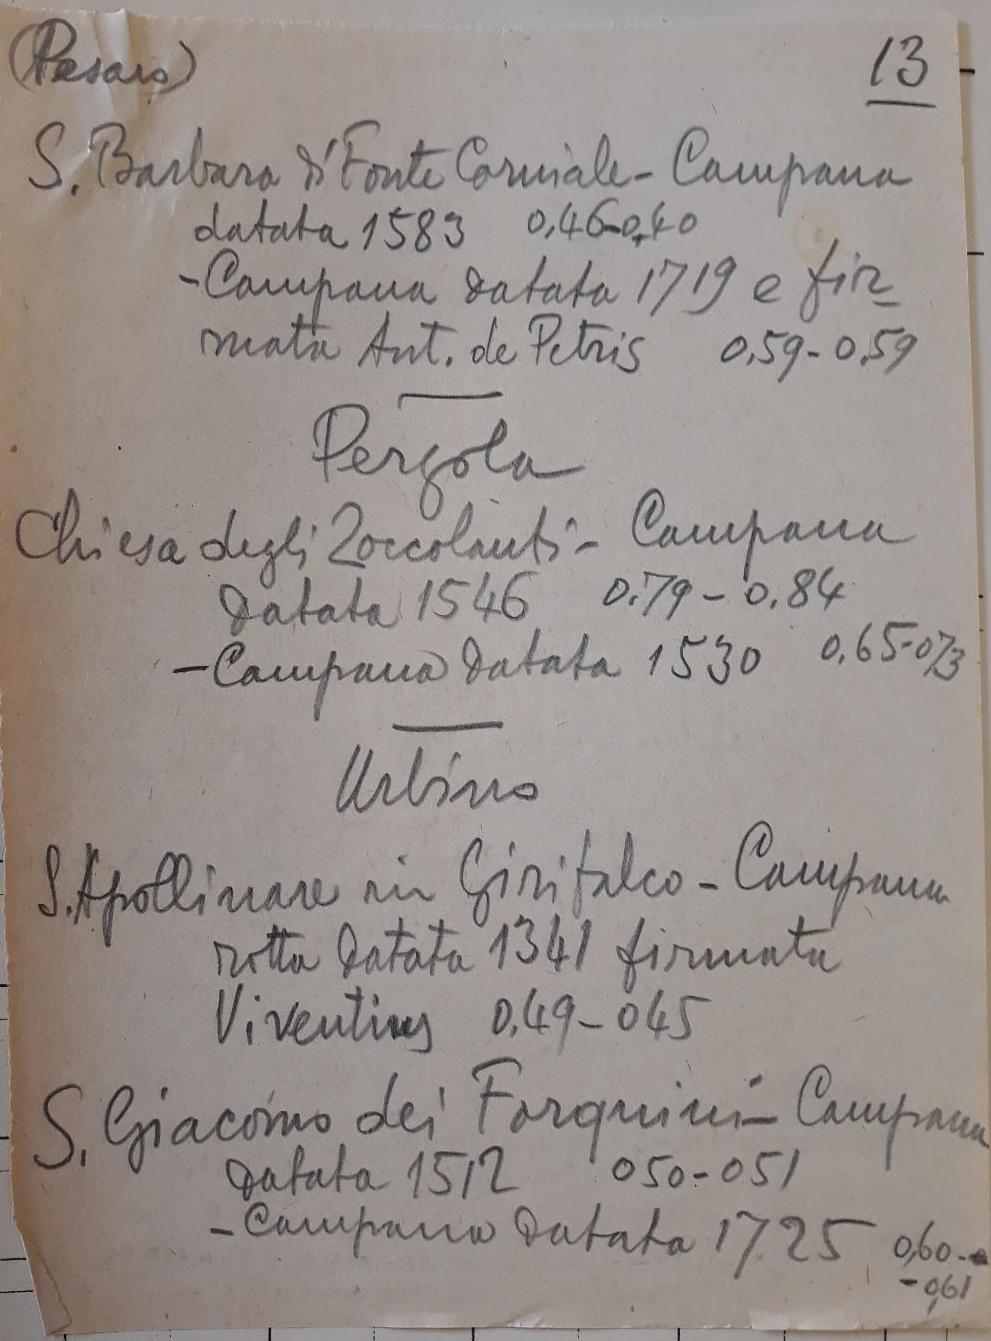 (Pesaro) 13
S. Barbara d'Fonte Corniale - Campana
datata 1583 0,46-0,40
- Campana datata 1719 e fir-
mata Ant. de Petris 0,59-0,59
Pergola
Chiesa degli Zoccolanti - Campana
datata 1546 0,79-0,84
- Campana datata 1530 0,65-0,73
Urbino
S. Apollinare in Girifalco - Campana
rotta datata 1341 firmata
Viventius 0,49-045
S. Giacomo dei Forquini - Campana
datata 1512 050-051
- Campana datata 1725 0,60-
- 0,61